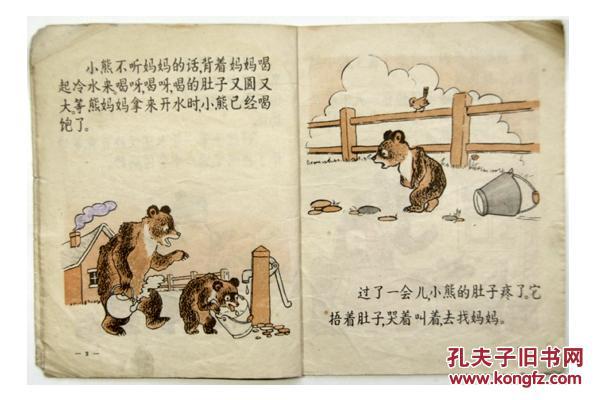 小熊不听妈妈的话,背着妈妈喝
起冷水来。喝呀,喝呀,喝的肚子又圆又
大。等熊妈妈拿来开水时,小熊已经喝
饱了。
过了一会儿,小熊的肚子疼了。它
捂着肚子,哭着叫着,去找妈妈。
孔夫子旧书网
www.kongfz.com